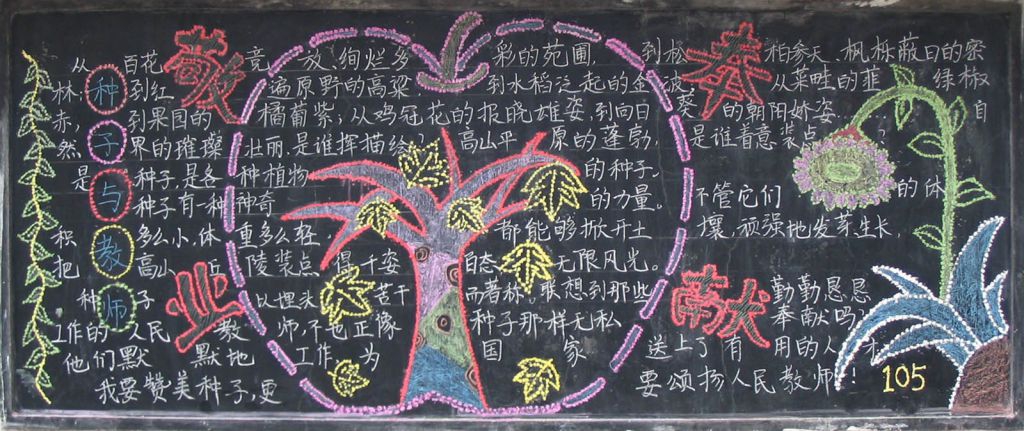 种子与教师
敬业奉献
从百花竞放、绚烂多彩的苑圃，到松柏参天、枫栎蔽日的密
林，到红遍原野的高粱，到水稻泛起的金波，从菜畦的韭绿椒
赤，到果园的橘葡紫；从鸡冠花的报晓雄姿，到向日葵的朝阳娇姿，自
然界的璀璨壮丽，是谁挥描绘高山平原的蓬勃，是谁着意装点
是种子，是各种植物的种子。
种子有一种神奇的力量。不管它们的体
积多么小，体重多么轻，都能够掀开土壤，顽强地发芽生长，
把高山丘陵装点得千姿百态、无限风光。
种子以埋头苦干而著称，联想到那些勤勤恳恳
工作的人民教师，不也正像种子那样无私奉献吗？
他们默默地工作，为国家送上了有用的人才
我要赞美种子，更要颂扬人民教师！
105